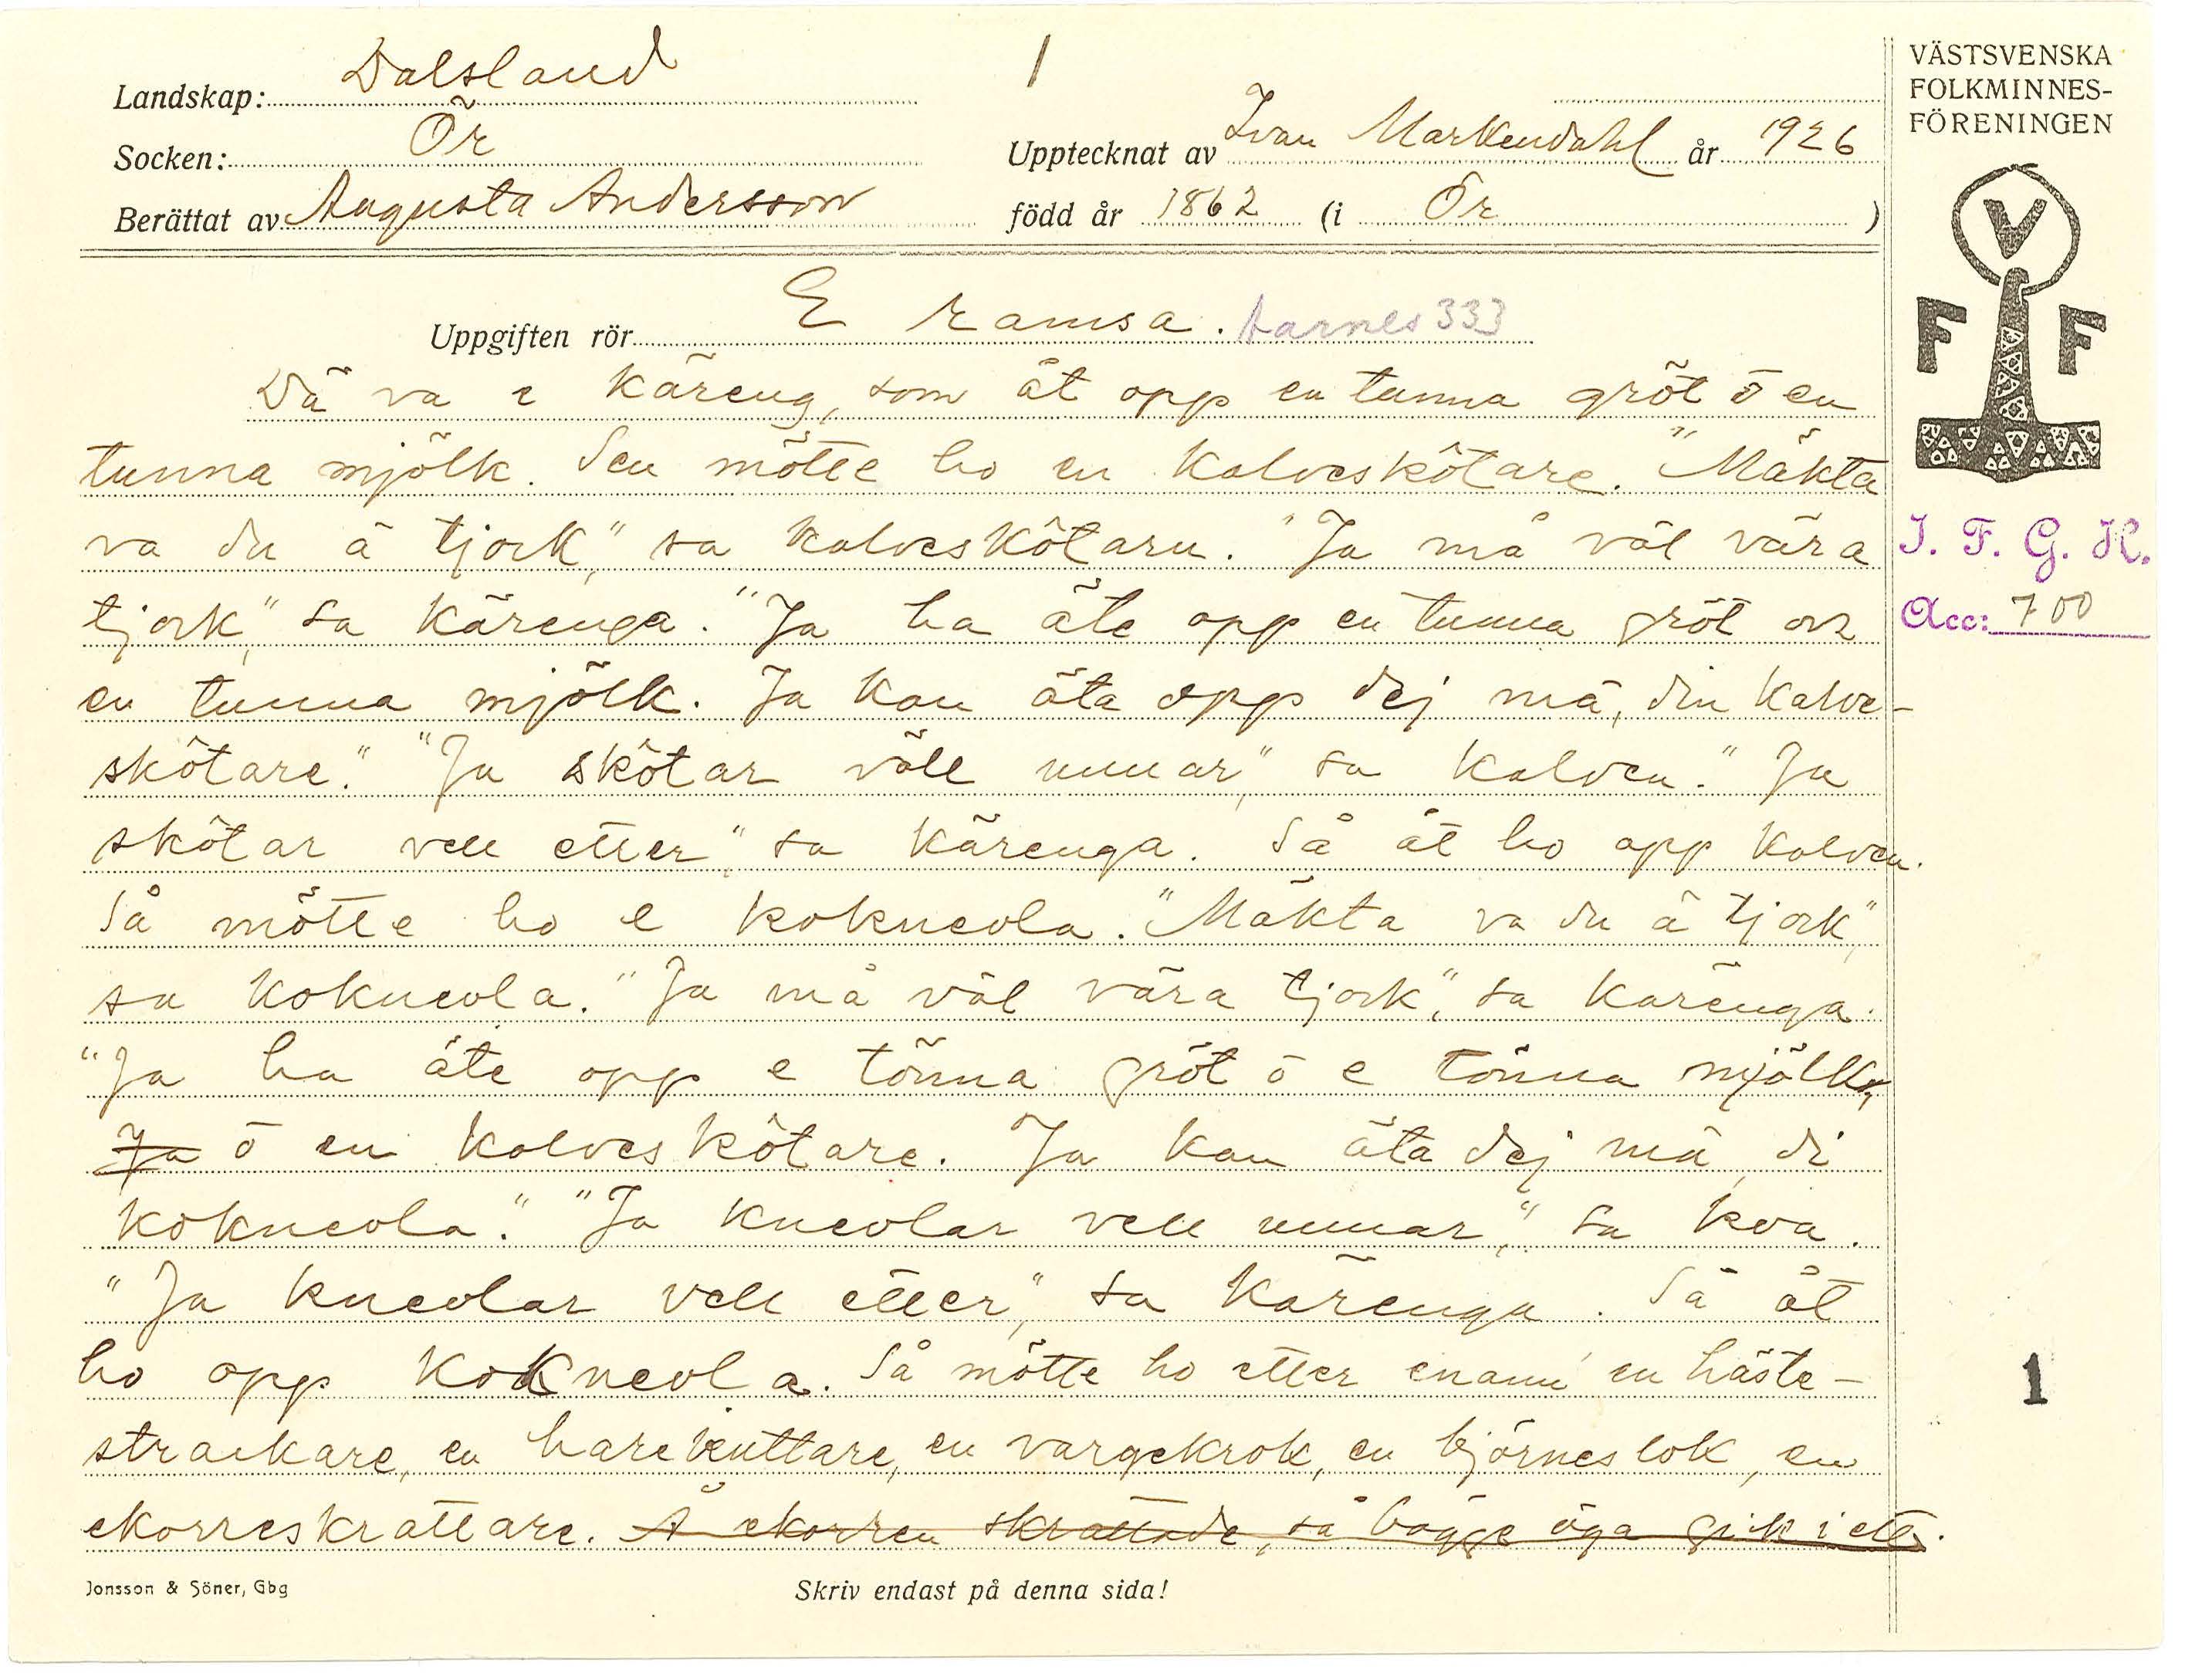 Landskap: Dalsland
1
VÄSTSVENSKA
FOLKMINNES-
FÖRENINGEN
Socken: Ör
Upptecknat av Ivan Markendahl år 1926
Berättat av Augusta Andersson
född år 1862 (i Ör )
V
F F
Uppgiften rör E ramsa. Aarnes 333
Dä va e käreng, som åt opp en tunna gröt ö en
tunna mjölk. Sen mötte ho en kalveskötare. "Mäkta
va du ä tjock," sa kalveskötarn. "Ja må väl vära
tjock," sa kärenga. "Ja ha äte opp en tunna gröt ock
en tunna mjölk. Ja kan äta opp dej mä, din kalve-
skötare." "Ja skötar väll unnar," sa kalven. "Ja
skötar vell etter," sa kärenga. Så åt ho opp kalven.
Så mötte ho e kokneola. "Mäkta va du ä tjock,"
sa kokneola. "Ja må väl vära tjock," sa kärenga.
"Ja ha äte opp e tönna gröt ö e tönna mjölk,
Ja ö en kalveskötare. Ja kan äta dej mä, di
kokneola." "Ja kneolar vell unnar," sa koa.
"Ja kneolar vell etter," sa kärenga. Så åt
ho opp kokneola. Så mötte ho etter enann en häste-
strackare, en harekuttare, en vargekrok, en björneslok, en
ekorreskrattare. Å ekorren skrattade, så bägge öga gick i ett.
I. F. G. H.
Acc: 700
1
Jonsson & Söner, Gbg
Skriv endast på denna sida!